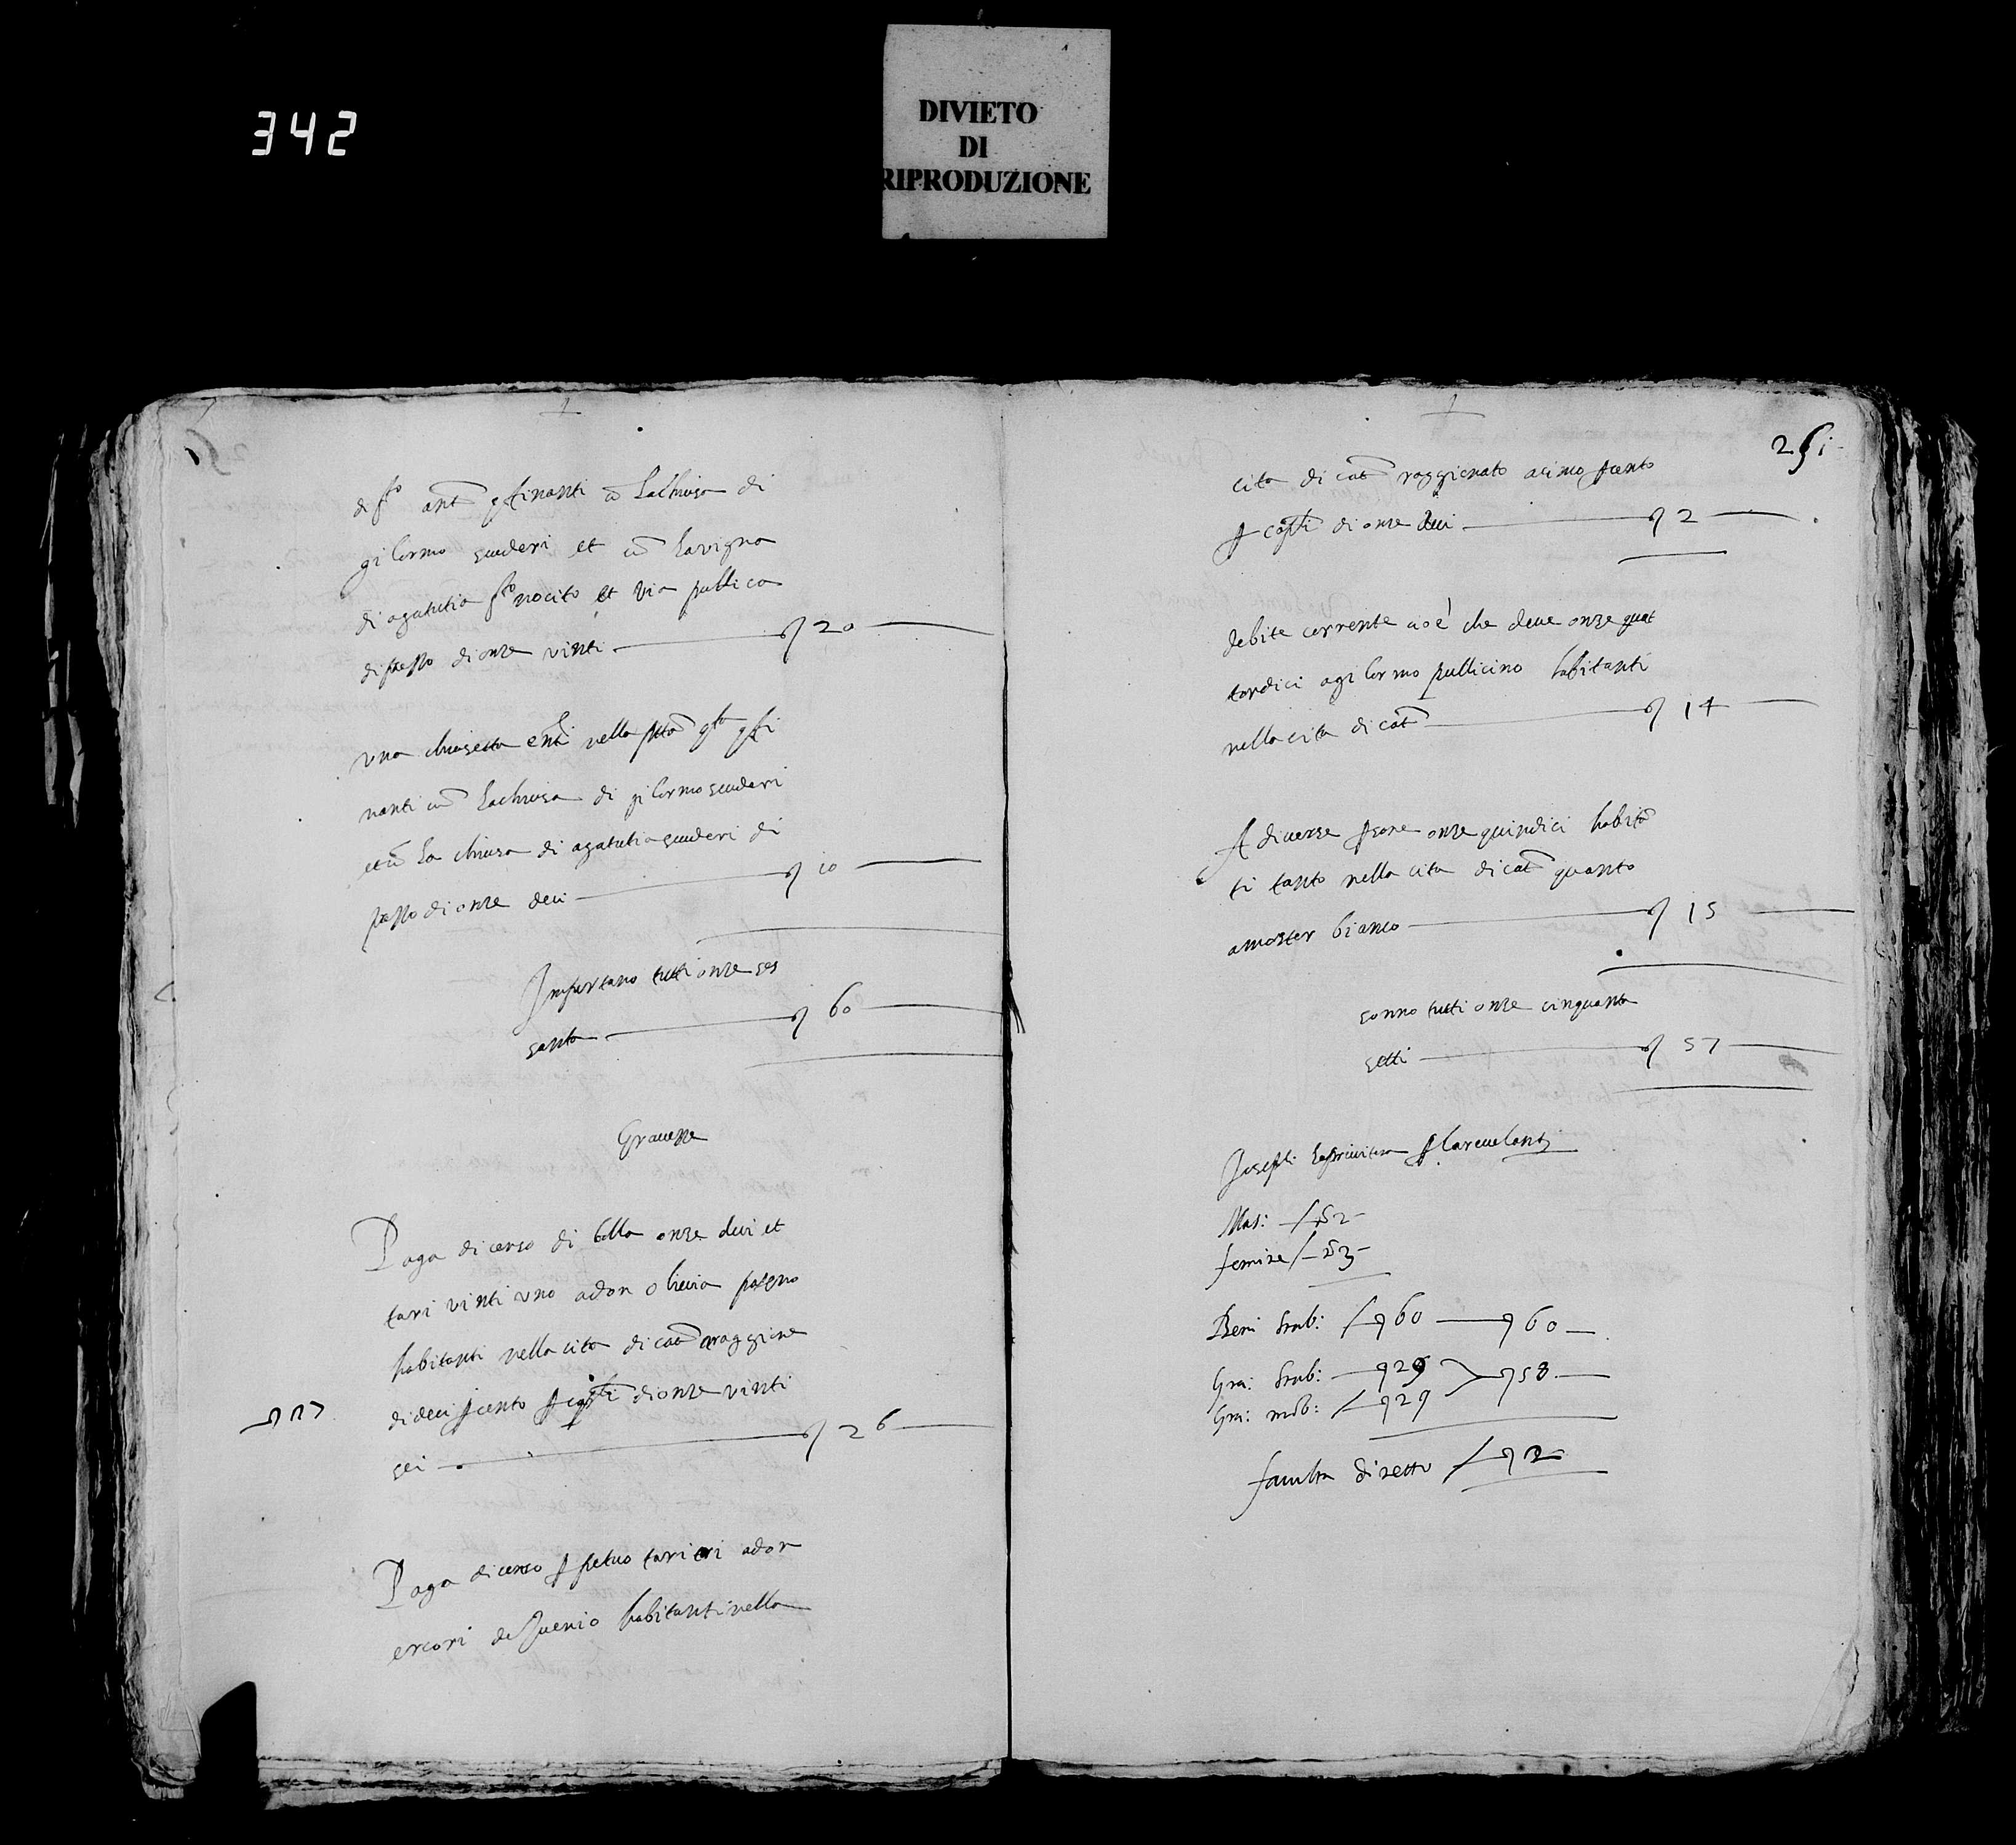 342
DIVIETO
DI
RIPRODUZIONE
ant cõ la chiusa di
gilormo scuderi et cũ la vigna
di agatutia nocito et via publica
di prezzo di onze vinti 20
una chiusetta nella
nanti cũ la chiusa di gilormo scuderi
et cũ la chiusa di agatutia scuderi di
prezzo di onze deci 10
Importano tutti onze ses
santa 60
Gravezze
Paga di censo di bolla onze deci et
tari vinti uno a don
habitanti nella cita di cat raggione
di deci per cento di onze vinti
sei 26
Paga di censo perpetuo tari tri a don
habitanti nella
251
cita di cat raggionato a cinco per cento
di onze dui 2
debite corrente cioè che deve onze quat
tordici a gilormo pullicino habitanti
nella cita di cat 14
A diverse persone onze quindici habitã
ti tanto nella cita di cat quanto
a moster bianco 15
sonno tutti onze cinquanta
setti 57
Mas: 52
femine 53
Beni stab: 60 60
Gra: stab: 29 58
Gra: mob: 29
faculta di netto 2